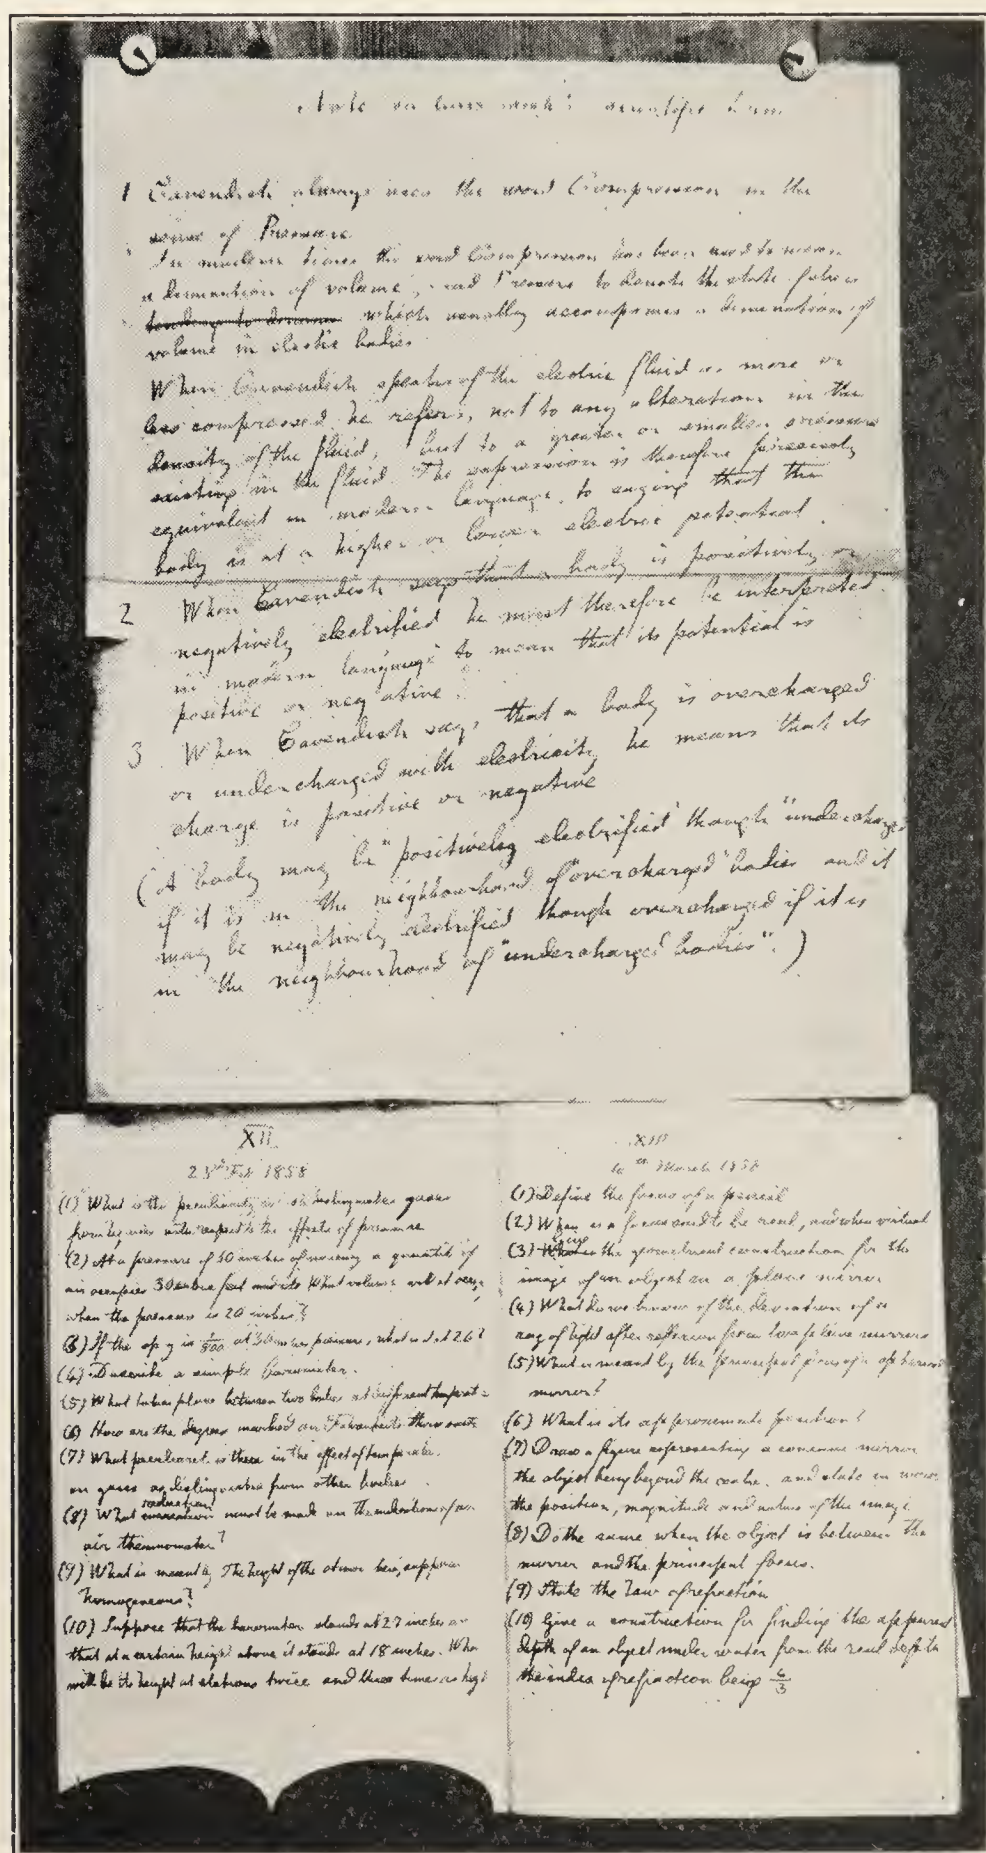 Note on
1 Cavendish always uses the word Compression in the
sense of Pressure
In modern times the word Compression has been used to mean
a diminution of volume, and Pressure to denote the state
which usually accompanies a diminution of
volume in elastic bodies
When Cavendish speaks of the electric fluid as more or
less compressed he refers, not to any alteration in the
density of the fluid, but to a greater or smaller pressure
existing in the fluid. The expression is therefore precisely
equivalent in modern language to saying that the
body is at a higher or lower electric potential.
2 When Cavendish says that a body is positively or
negatively electrified he must therefore be interpreted
in modern language to mean that its potential is
positive or negative.
3 When Cavendish says that a body is overcharged
or undercharged with electricity he means that its
charge is positive or negative
(A body may be "positively electrified" though "undercharged
if it is in the neighbourhood of "overcharged" bodies and it
may be negatively electrified though overcharged if it is
in the neighbourhood of "undercharged bodies".)
XII
Feb 1858
(1) What is the peculiarity
with respect to the effects of pressure
(2) At a pressure of 30 inches of mercury a quantity of
air occupies 30 cubic feet What volume will it occupy
when the pressure is 20 inches?
(3) If the sp g is 1/800 at 30 inches pressure, what is it at 26?
(4) Describe a simple Barometer.
(5) What takes place between two bodies at different temperat
(6) How are the degrees marked on Fahrenheits thermometer
(7) What is there in the effect of temperature
on gases as distinguished from other bodies
(8) What reduction must be made on the indication of an
air thermometer?
(9) What is meant by The height of the atmosphere, suppose
homogeneous?
(10) Suppose that the barometer stands at 27 inches
that at a certain height above it stands at 18 inches. Wha
will be its height at stations twice and three times as high
XIII
March 1858
(1) Define the focus of a pencil
(2) When is a focus said to be real, and when virtual
(3) Give the geometrical construction for the
image of an object in a plane mirror
(4) What do we know of the deviation of a
ray of light after reflexion from two plane mirrors
(5) What is meant by the principal focus of a spherical
mirror?
(6) What is its approximate position?
(7) Draw a figure representing a concave mirror
the object being beyond the centre. and state in words
the position, magnitude and nature of the image.
(8) Do the same when the object is between the
mirror and the principal focus.
(9) State the Law of refraction
(10) Give a construction for finding the apparent
depth of an object under water from the real depth
the index of refraction being